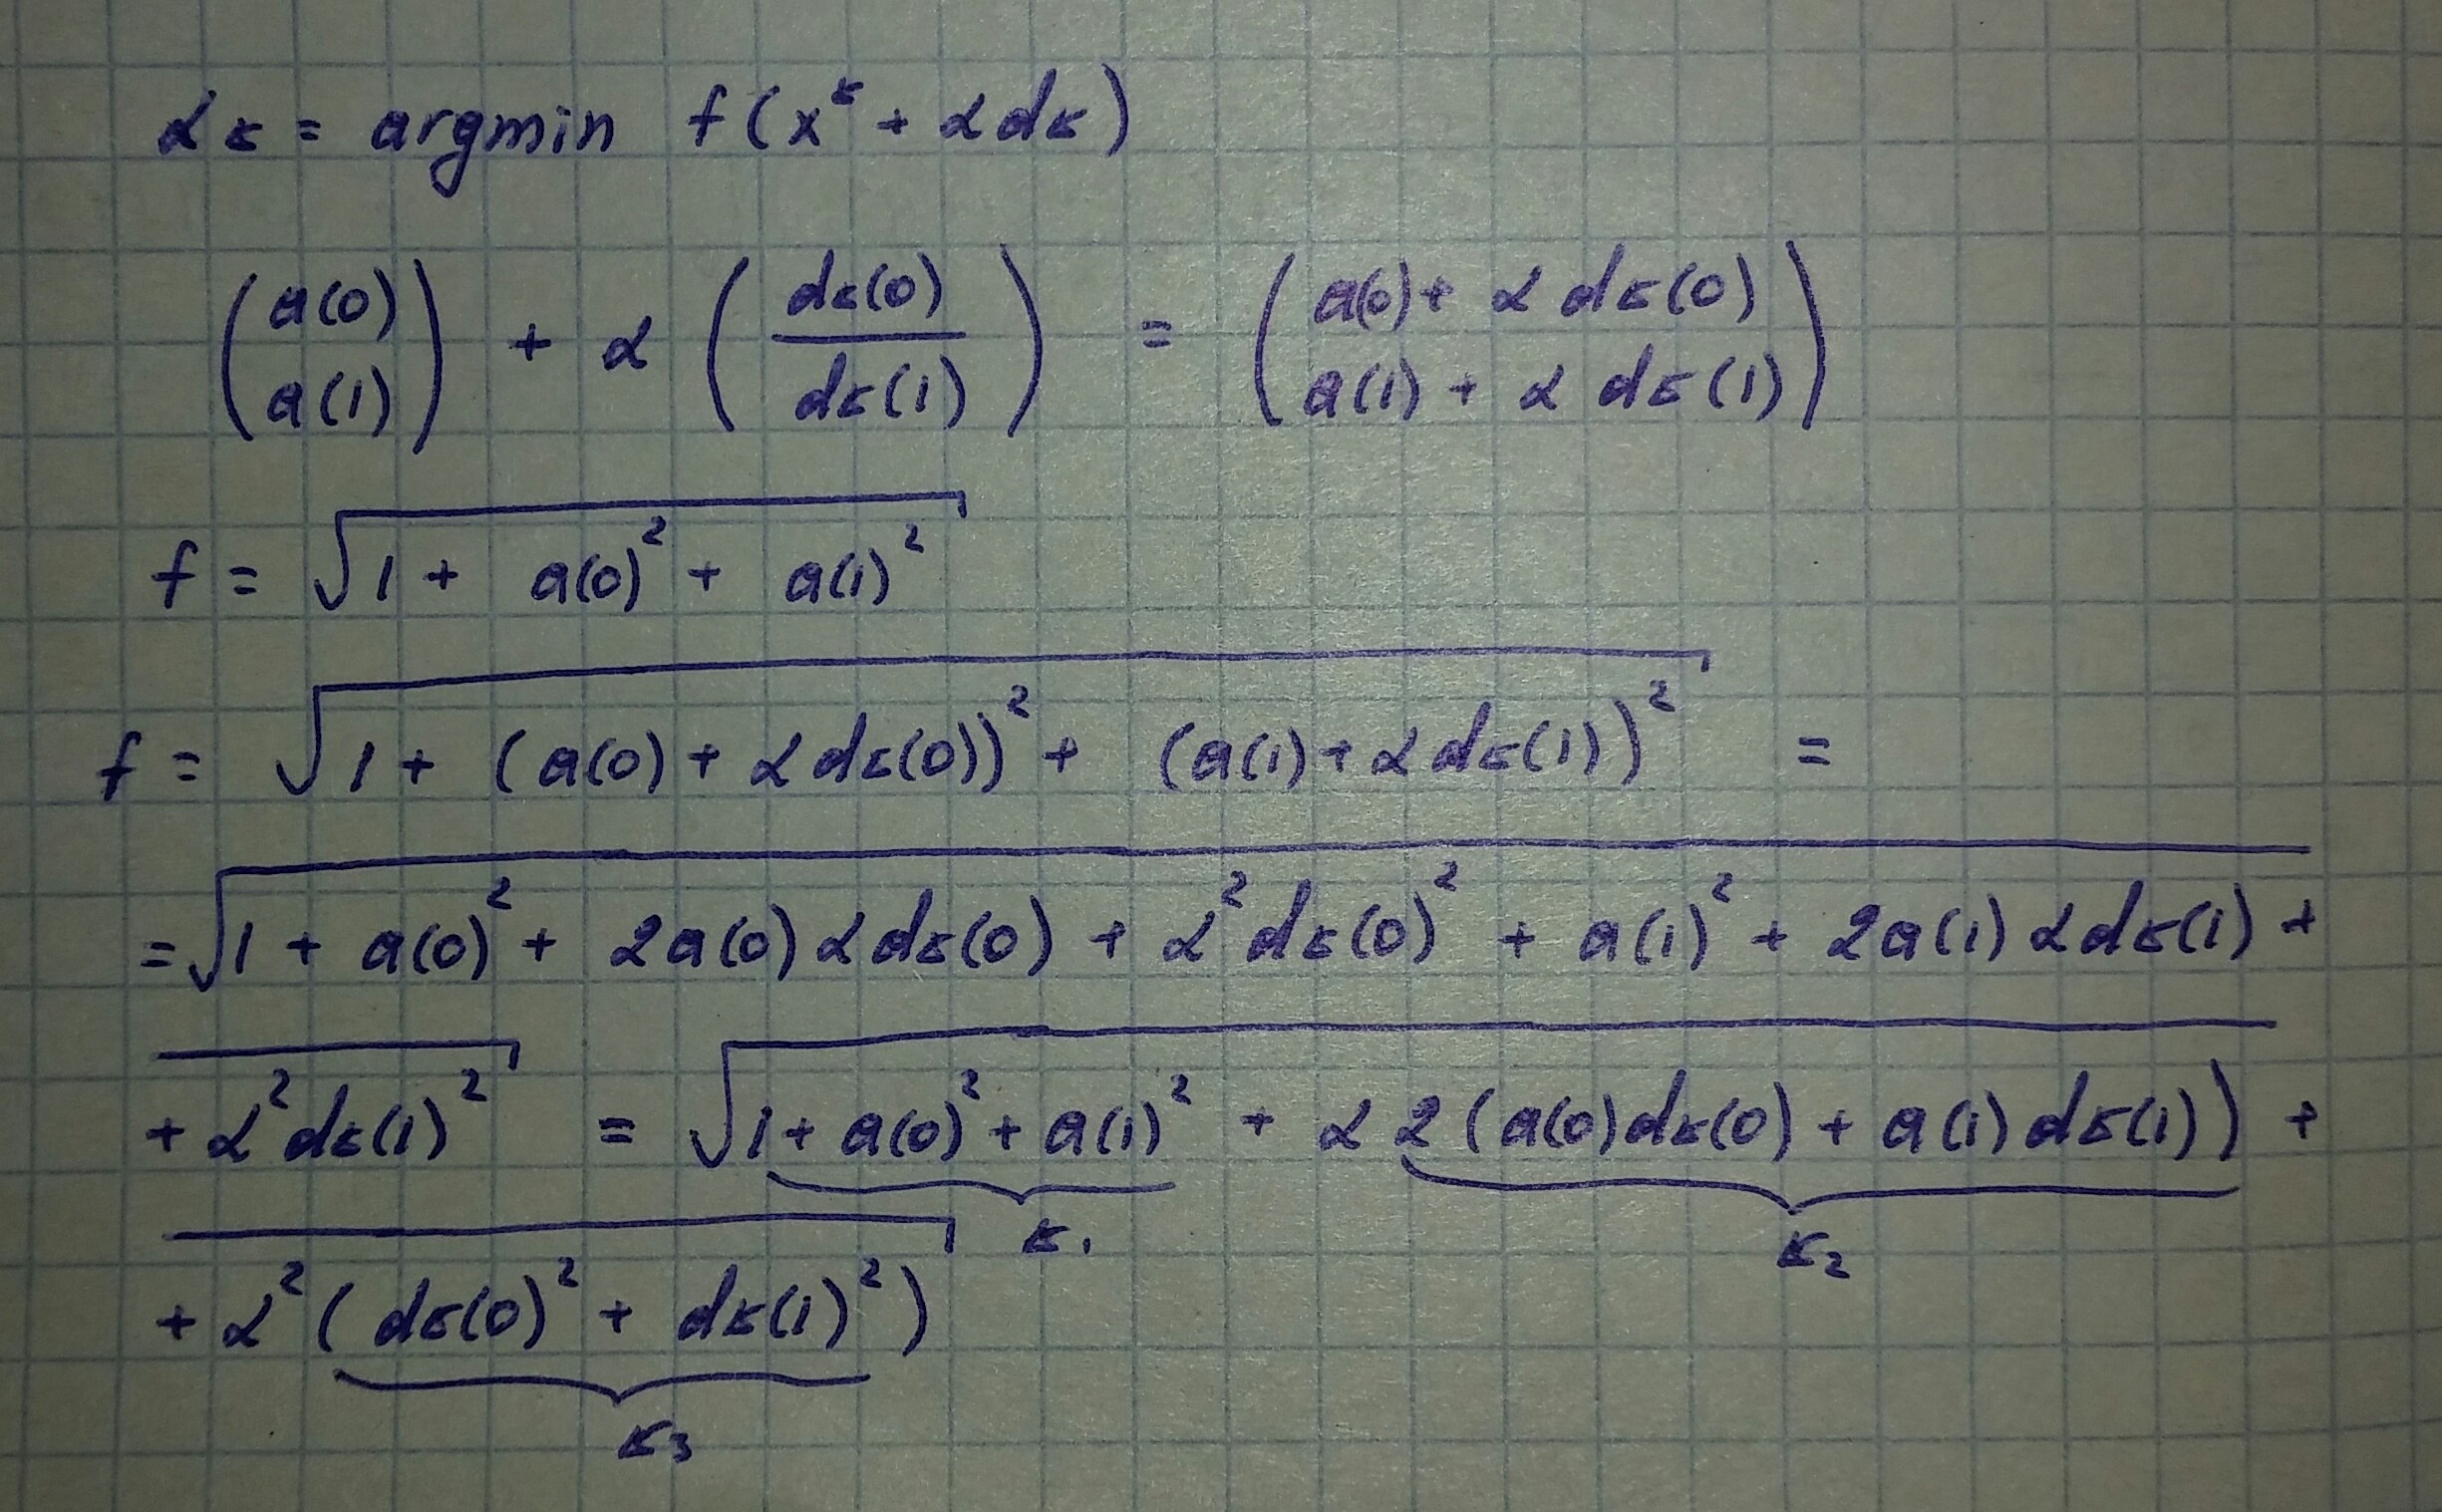 αₖ = argmin f(xᵏ + αdₖ)
(a(0) a(1)) + α (dₖ(0) / dₖ(1)) = (a(0) + αdₖ(0) a(1) + αdₖ(1))
f = √(1 + a(0)² + a(1)²)
f = √(1 + (a(0) + αdₖ(0))² + (a(1) + αdₖ(1))²) =
= √(1 + a(0)² + 2a(0)αdₖ(0) + α²dₖ(0)² + a(1)² + 2a(1)αdₖ(1) +
+ α²dₖ(1)²) = √(1 + a(0)² + a(1)² + α2(a(0)dₖ(0) + a(1)dₖ(1)) +
κ₁ κ₂
+ α²(dₖ(0)² + dₖ(1)²))
κ₃